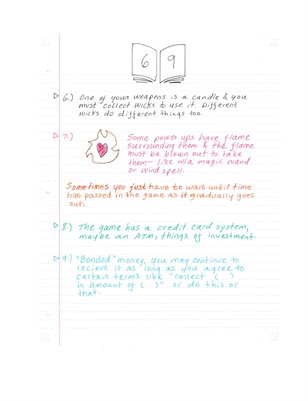 6 9
▷ 6.) One of your weapons is a candle & you
must collect wicks to use it. Different
wicks do different things too.
▷ 7.) Some power ups have flame
surrounding them & the flame
must be blown out to take
them - like w/a magic wand
or wind spell.
Sometimes you just have to wait until time
has passed in the game as it gradually goes
out.
▷ 8.) The game has a credit card system,
maybe an ATM, things of investment.
▷ 9.) "Bonded" money, you may continue to
recieve it as long as you agree to
certain terms like "collect ( )
in amount of ( )" or do this or
that.